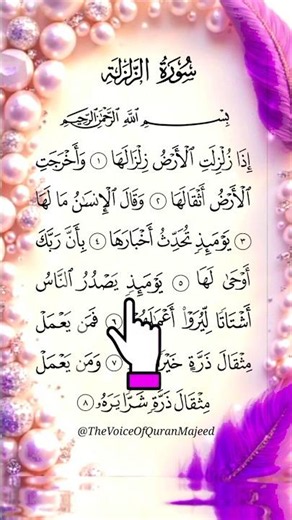 سُورَةُ الزَّلْزَلَةِ
بِسْمِ ٱللَّهِ ٱلرَّحْمَٰنِ ٱلرَّحِيمِ
إِذَا زُلْزِلَتِ ٱلْأَرْضُ زِلْزَالَهَا ١ وَأَخْرَجَتِ
ٱلْأَرْضُ أَثْقَالَهَا ٢ وَقَالَ ٱلْإِنسَٰنُ مَا لَهَا
٣ يَوْمَئِذٍ تُحَدِّثُ أَخْبَارَهَا ٤ بِأَنَّ رَبَّكَ
أَوْحَىٰ لَهَا ٥ يَوْمَئِذٍ يَصْدُرُ ٱلنَّاسُ
أَشْتَاتًا لِّيُرَوْا۟ ٦ فَمَن يَعْمَلْ
مِثْقَالَ ذَرَّةٍ ٧ وَمَن يَعْمَلْ
مِثْقَالَ ذَرَّةٍ شَرًّا يَرَهُۥ ٨
@TheVoiceOfQuranMajeed